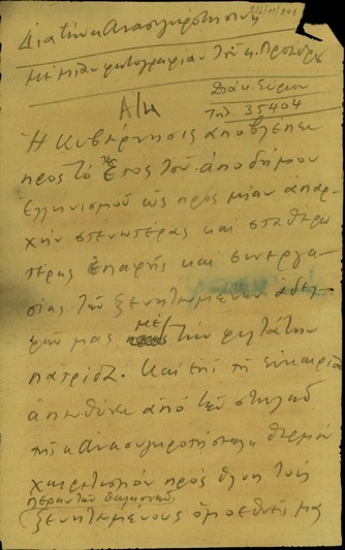 Διά την «Ανασυγκρότησιν»
Με μίαν φωτογραφίαν του κ. Προέδρου
Διάκ. Εύριπ
Τηλ 35404
Α/κ
Η Κυβέρνησις αποβλέπει
προς το Έτος του αποδήμου
Ελληνισμού ως προς μίαν απαρ-
χήν στενωτέρας και σταθερω
τέρας επαφής και συνεργα-
σίας των ξενητευμένων αδελ-
φών μας με την φιλτάτην
πατρίδα. Και επί τη ευκαιρία
απευθύνω από των στηλών
της «Ανασυγκροτήσεως» θερμόν
χαιρετισμόν προς όλους τους
πέραν των θαλασσών
ξενητευμένους ομοεθνείς μας